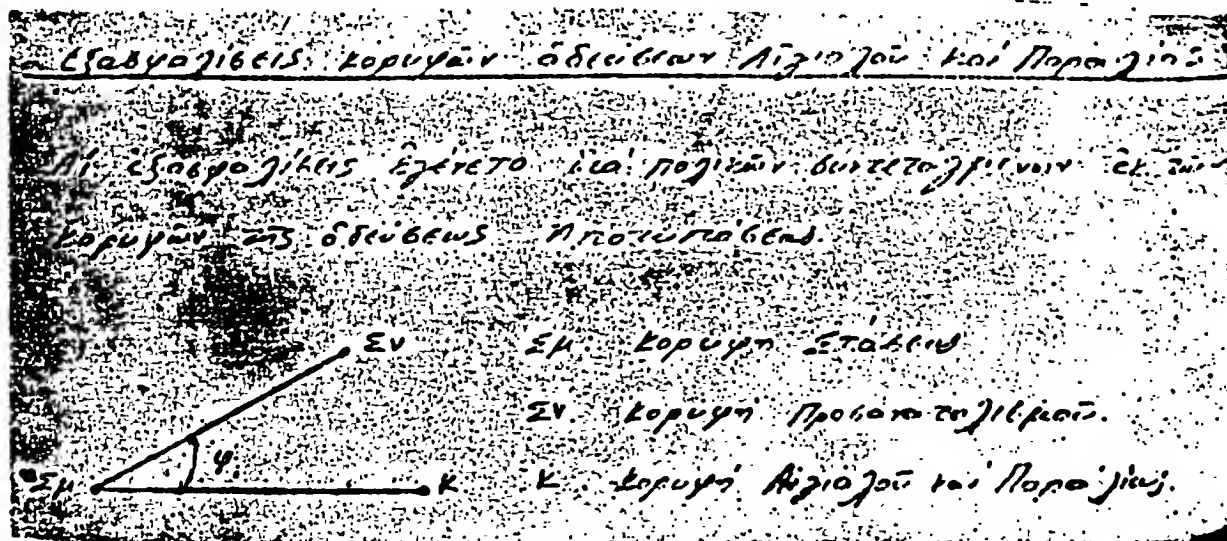 Ἐξασφαλίσεις κορυφῶν ὁδεύσεων Αἰγιαλοῦ καί Παραλίας
Αἱ ἐξασφαλίσεις ἐγένετο διά πολικῶν συντεταγμένων ἐκ τῶν
κορυφῶν τῆς ὁδεύσεως Ἀποτυπώσεως.
Σν
Σμ Κορυφή Στάσεως
Σν. Κορυφή Προσανατολισμοῦ.
φ
Σμ Κ Κ. Κορυφή Αἰγιαλοῦ καί Παραλίας.